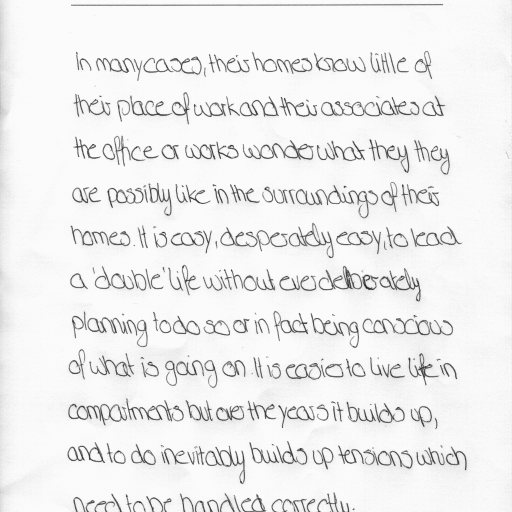 In many cases, their homes know little of
their place of work and their associates at
the office or works wonder what they they
are possibly like in the surroundings of their
homes. It is easy, desperately easy, to lead
a 'double' life without ever deliberately
planning to do so or in fact being conscious
of what is going on. It is easier to live life in
compartments but over the years it builds up,
and to do inevitably builds up tensions which
need to be handled correctly.